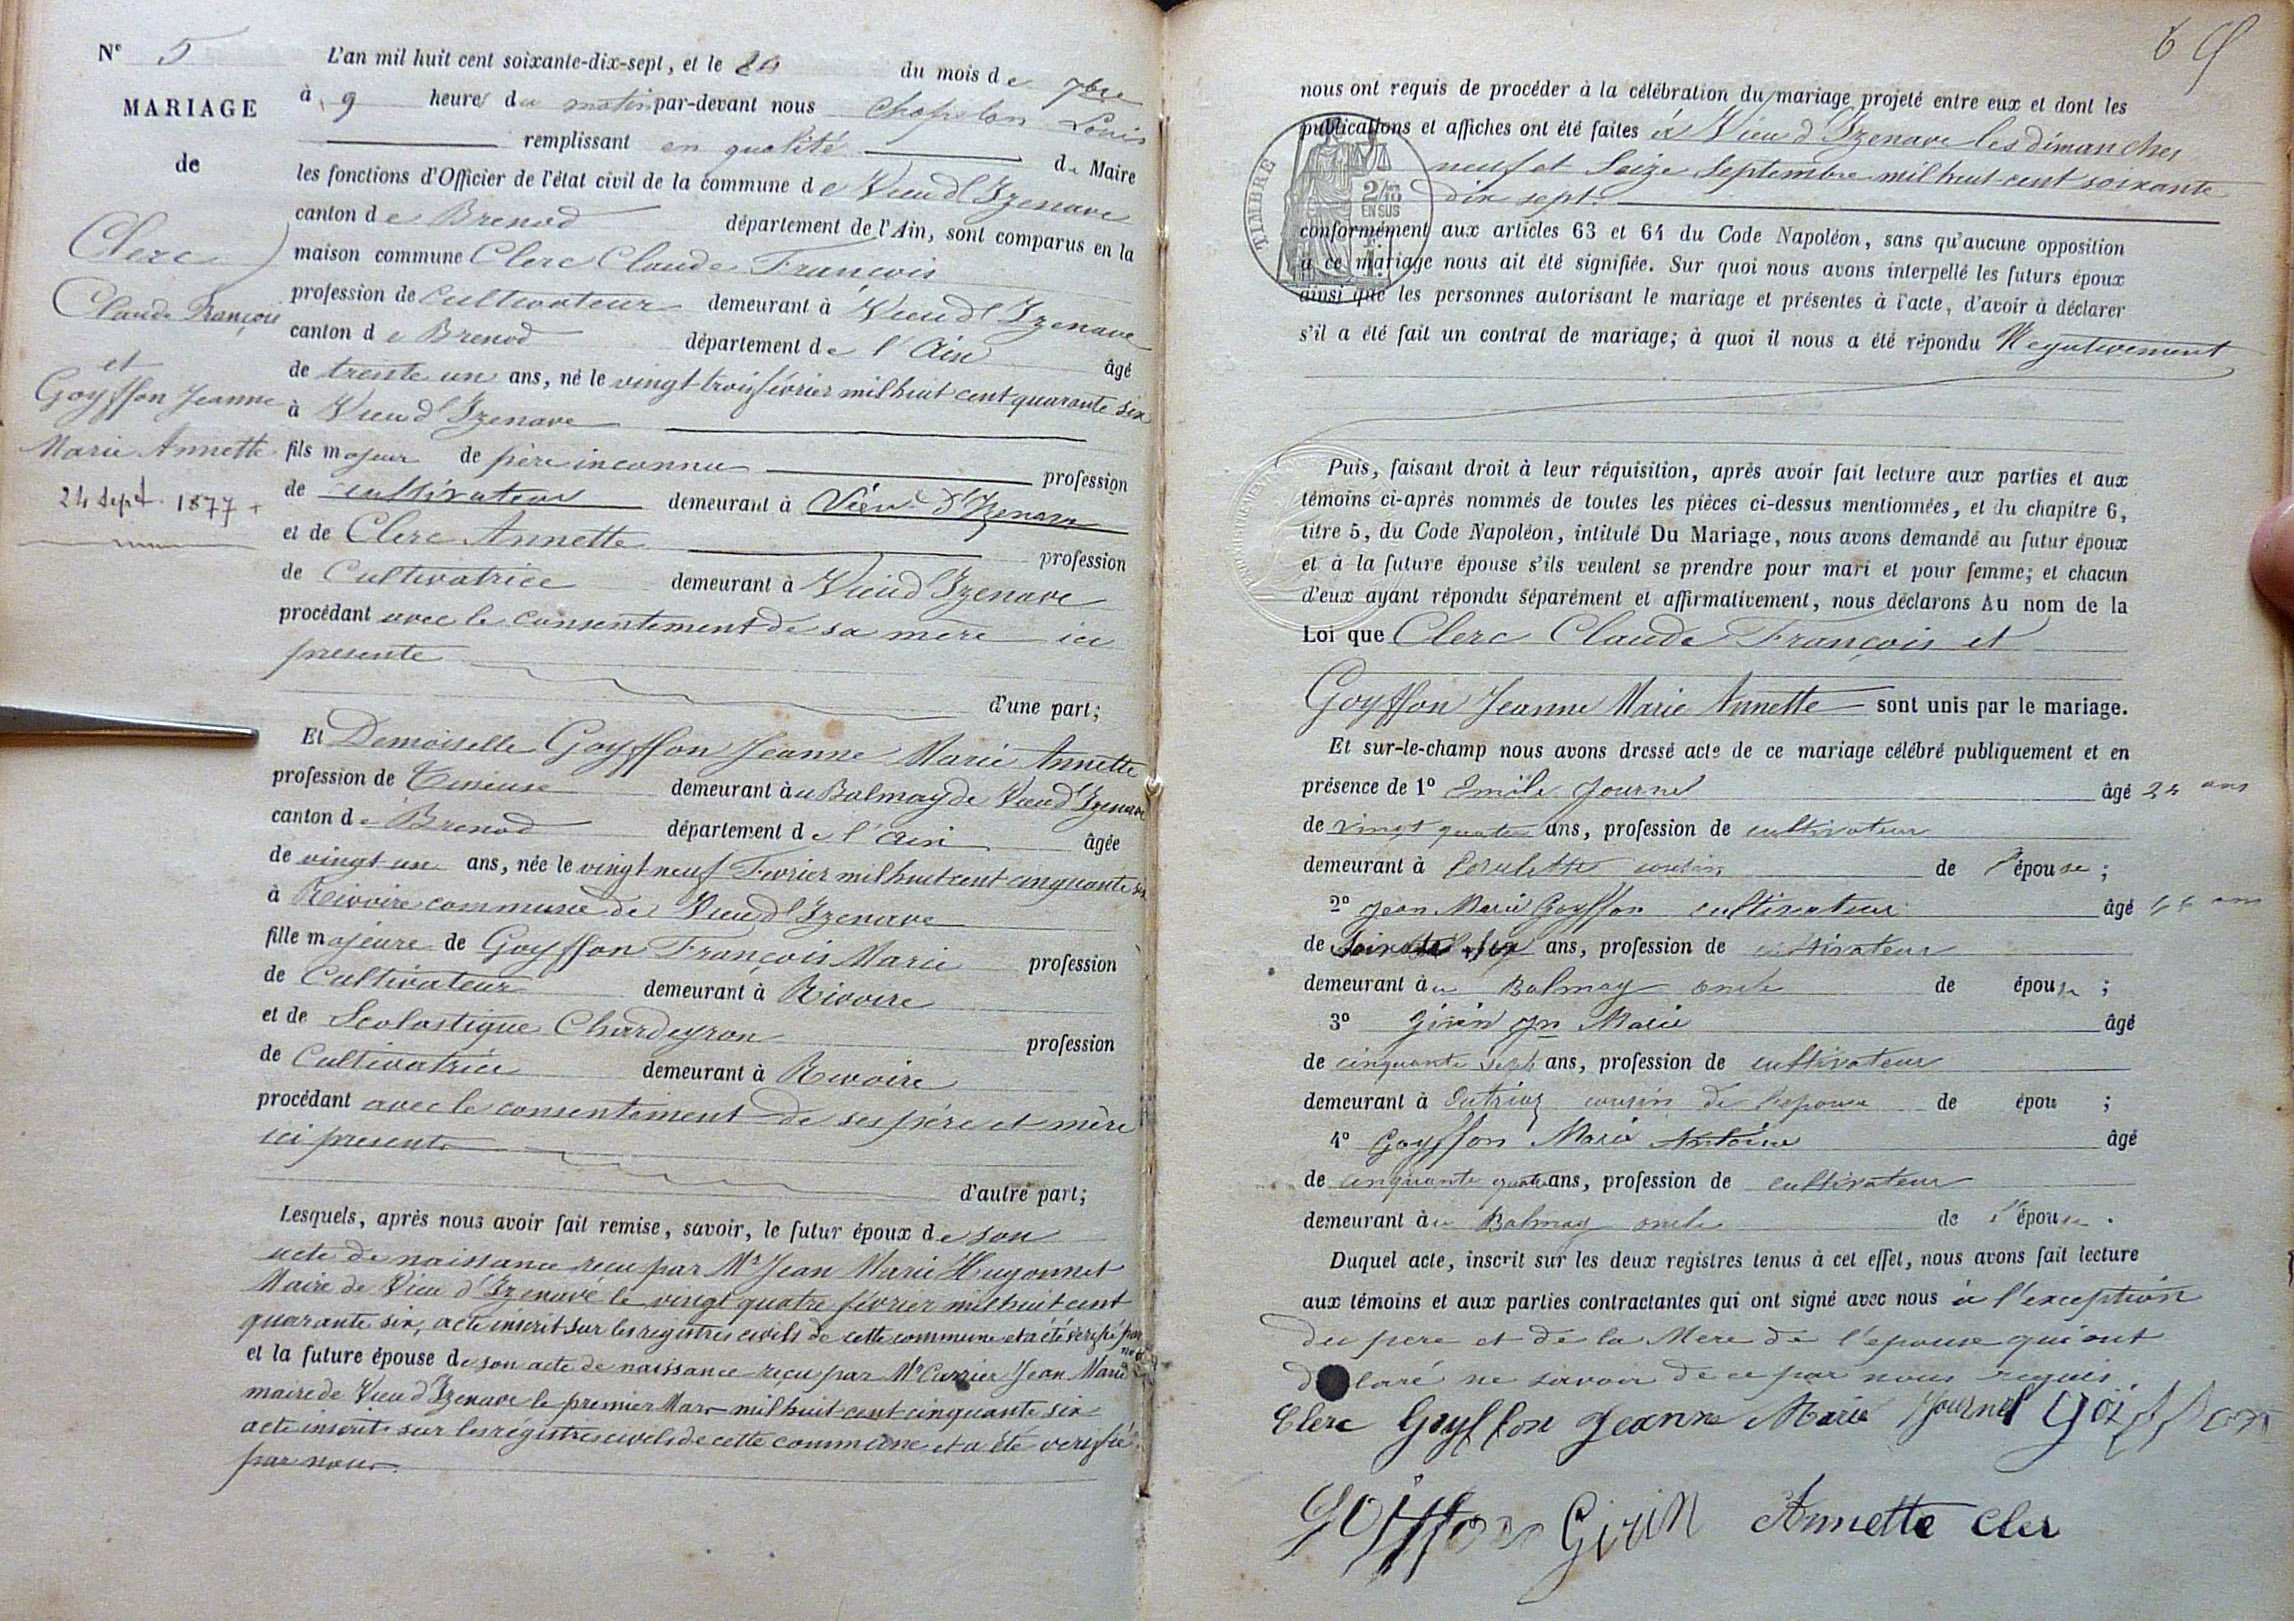 N° 5
MARIAGE
de
Clerc
Claude François
et
Goyffon Jeanne
Marie Annette
24 Sept. 1877 +
L'an mil huit cent soixante-dix-sept, et le 24 du mois de 7bre
à 9 heures du matin par-devant nous Chapelon Louis
remplissant en qualité de Maire
les fonctions d'Officier de l'état civil de la commune de Vieu d'Izenave
canton de Brenod département de l'Ain, sont comparus en la
maison commune Clerc Claude François
profession de Cultivateur demeurant à Vieu d'Izenave
canton de Brenod département de l'Ain âgé
de trente un ans, né le vingt trois février mil huit cent quarante six
à Vieu d'Izenave
fils majeur de père inconnu profession
de cultivateur demeurant à Vieu d'Izenave
et de Clerc Annette profession
de Cultivatrice demeurant à Vieu d'Izenave
procédant avec le consentement de sa mère ici
presente
d'une part;
Et Demoiselle Goyffon Jeanne Marie Annette
profession de demeurant au Balmay de Vieu d'Izenave
canton de Brenod département de l'Ain âgée
de vingt un ans, née le vingt neuf Fevrier mil huit cent cinquante six
à Rivoire commune de Vieu d'Izenave
fille majeure de Goyffon François Marie profession
de Cultivateur demeurant à Rivoire
et de Scolastique Chardeyron profession
de Cultivatrice demeurant à Rivoire
procédant avec le consentement de ses père et mère
ici présents
d'autre part;
Lesquels, après nous avoir fait remise, savoir, le futur époux de son
acte de naissance reçu par Mr Jean Marie Hugonnet
Maire de Vieu d'Izenave le vingt quatre février mil huit cent
quarante six, acte inscrit sur les registres civils de cette commune et a été vérifié par
nous
et la future épouse de son acte de naissance reçu par Mr Carrier Jean Marie
maire de Vieu d'Izenave le premier Mars mil huit cent cinquante six
acte inscrit sur les régistres civils de cette commune et a été verifié
par nous.
nous ont requis de procéder à la célébration du mariage projeté entre eux et dont les
publications et affiches ont été faites à Vieu d'Izenave les dimanches
neuf et Seize Septembre mil huit cent soixante
dix sept.
TIMBRE
2/10
EN SUS
conformément aux articles 63 et 64 du Code Napoléon, sans qu'aucune opposition
à ce mariage nous ait été signifiée. Sur quoi nous avons interpellé les futurs époux
ainsi que les personnes autorisant le mariage et présentes à l'acte, d'avoir à déclarer
s'il a été fait un contrat de mariage; à quoi il nous a été répondu Negativement
Puis, faisant droit à leur réquisition, après avoir fait lecture aux parties et aux
témoins ci-après nommés de toutes les pièces ci-dessus mentionnées, et du chapitre 6,
titre 5, du Code Napoléon, intitulé Du Mariage, nous avons demandé au futur époux
et à la future épouse s'ils veulent se prendre pour mari et pour femme; et chacun
d'eux ayant répondu séparément et affirmativement, nous déclarons Au nom de la
Loi que Clerc Claude François et
Goyffon Jeanne Marie Annette sont unis par le mariage.
Et sur-le-champ nous avons dressé acte de ce mariage célébré publiquement et en
présence de 1° Emile Journel âgé 24 ans
de vingt quatre ans, profession de cultivateur
demeurant à cousin de l'épouse;
2° Jean Marie Goyffon cultivateur âgé ans
de ans, profession de cultivateur
demeurant au Balmay oncle de épouse;
3° Girin Jn Marie âgé
de cinquante sept ans, profession de cultivateur
demeurant à Outriaz cousin de l'epouse de épou ;
4° Goyffon Marie Antoine âgé
de cinquante quatre ans, profession de cultivateur
demeurant au Balmay oncle de l'épouse.
Duquel acte, inscrit sur les deux registres tenus à cet effet, nous avons fait lecture
aux témoins et aux parties contractantes qui ont signé avec nous à l'exception
du pere et de la Mere de l'epouse qui ont
déclaré ne savoir de ce par nous requis
Clerc Goyffon Jeanne Marie Journel Goiffon
Goiffon Girin Annette Cler